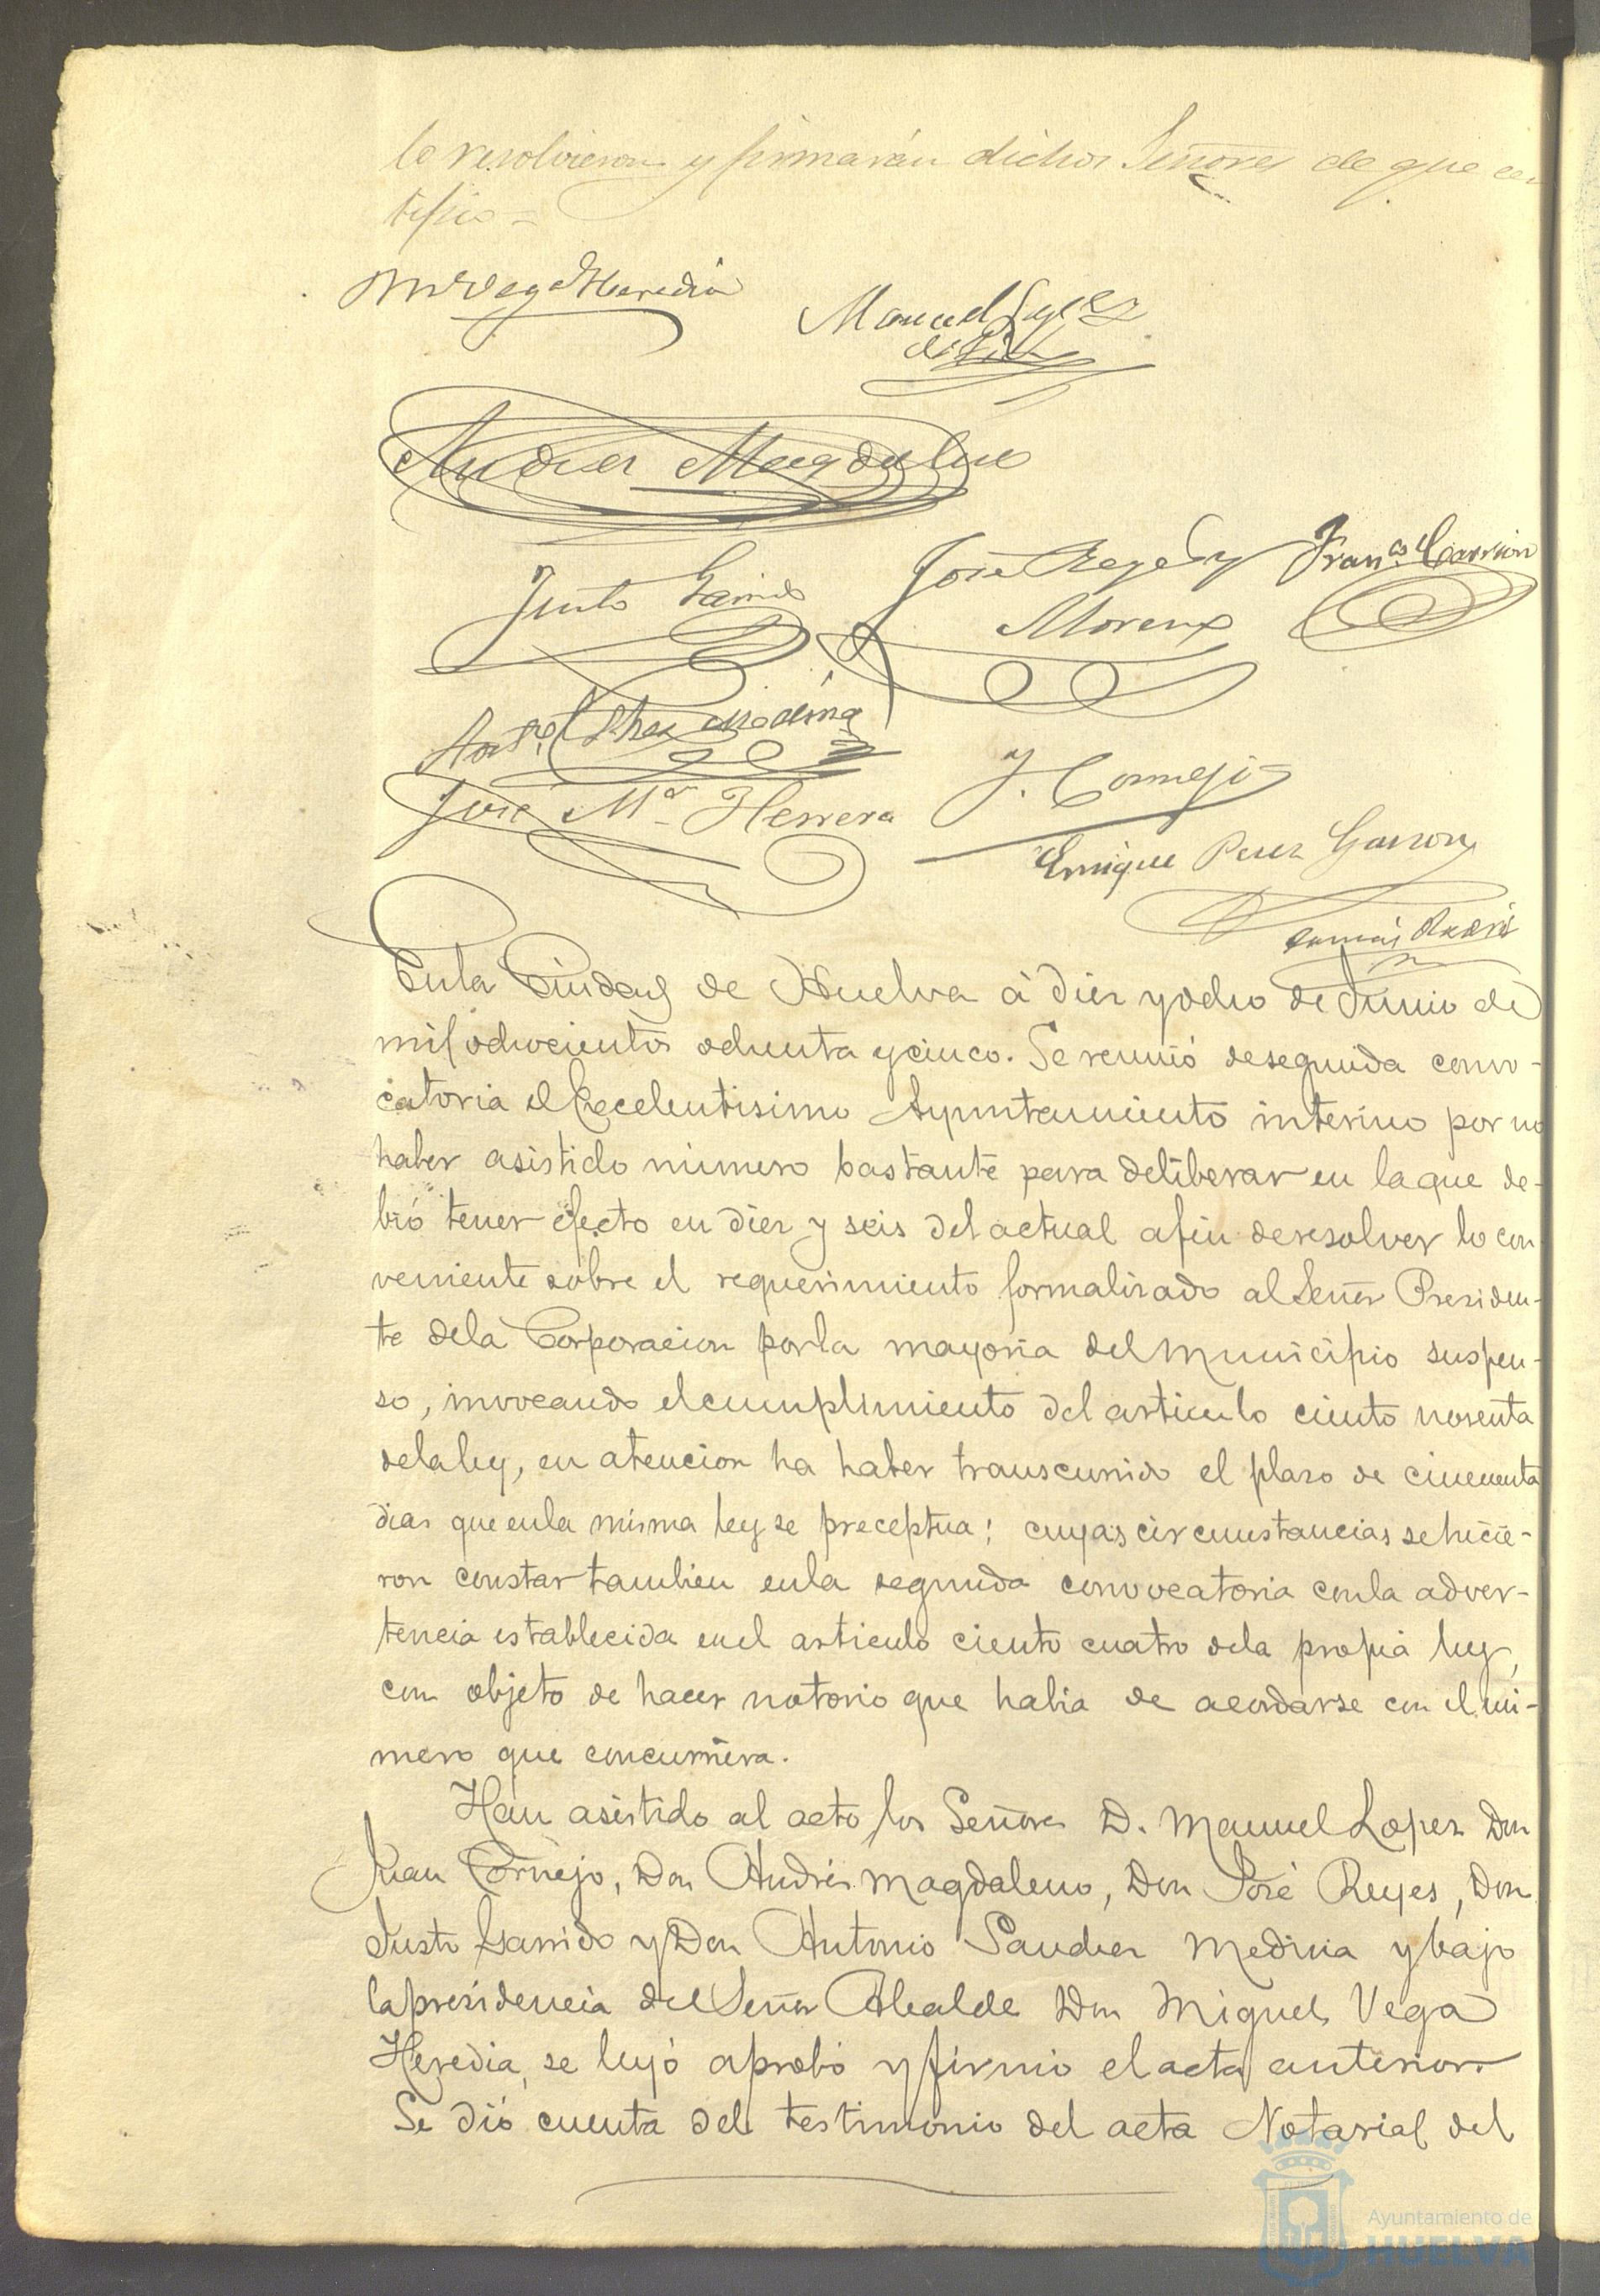 lo resolvieron y firmarán dichos Señores de que cer
tifico=
M Vega Heredia
Manuel Lopez
Andres Magdaleno
Justo Garrido
José Reyes y
Moreno
Fran.co Carrion
Ant.º Shez Medina
J. Cornejo
José Mª Herrera
Enrique Perez Garzon
En la Ciudad de Huelva á diez y ocho de Junio de
mil ochocientos ochenta y cinco. Se reunió de segunda convo-
catoria el Excelentisimo Ayuntamiento interino por no
haber asistido número bastante para deliberar en la que de-
bió tener efecto en diez y seis del actual a fin de resolver lo con
veniente sobre el requerimiento formalizado al Señor Presiden-
te de la Corporacion por la mayoria del Municipio suspen-
so, invocando el cumplimiento del articulo ciento nosenta
de la ley, en atencion ha haber transcurrido el plazo de cincuenta
dias que en la misma ley se preceptua; cuyas circunstancias se hicie-
ron constar tambien en la segunda convocatoria con la adver-
tencia establecida en el articulo ciento cuatro de la propia ley,
con objeto de hacer notorio que habia de acordarse con el nú-
mero que concurriera.
Han asistido al acto los Señores D. Manuel Lopez Don
Juan Cornejo, Don Andrés Magdaleno, Don José Reyes, Don
Justo Garrido y Don Antonio Sanchez Medina y bajo
la presidencia del Señor Alcalde Don Miguel Vega
Heredia, se leyó aprobó y firmió el acta anterior.
Se dió cuenta del testimonio del acta Notarial del
Ayuntamiento de
HUELVA